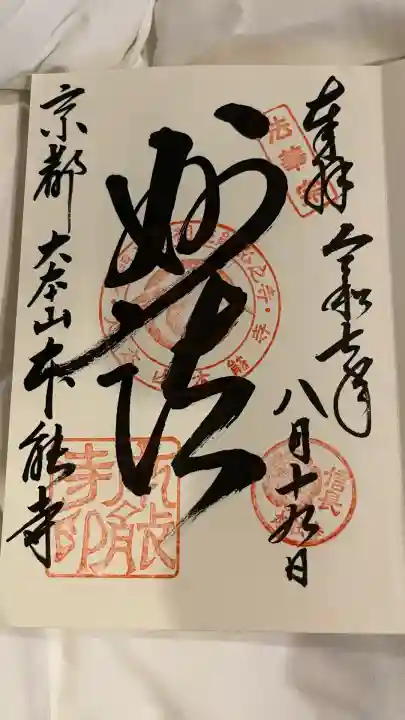 奉拝
令和七年
八月十九日
妙法
京都 大本山 本能寺
本能
寺印
信長